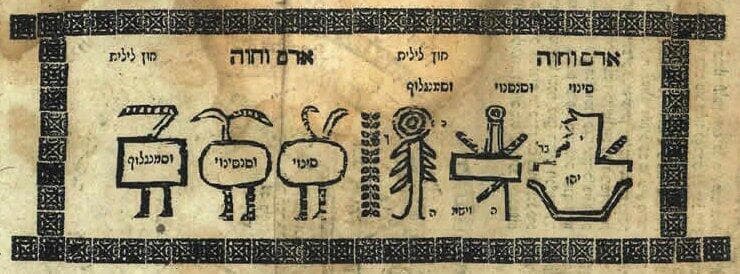 אדם וחוה חוץ לילית אדם וחוה חוץ לילית
סינוי וסנסנוי וסמנגלוף
סינוי וסנסינוי וסמנגלוף